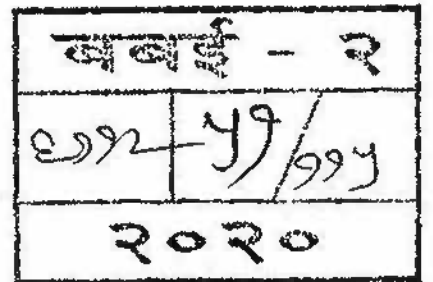 बबई - २
५१/११५
२०२०